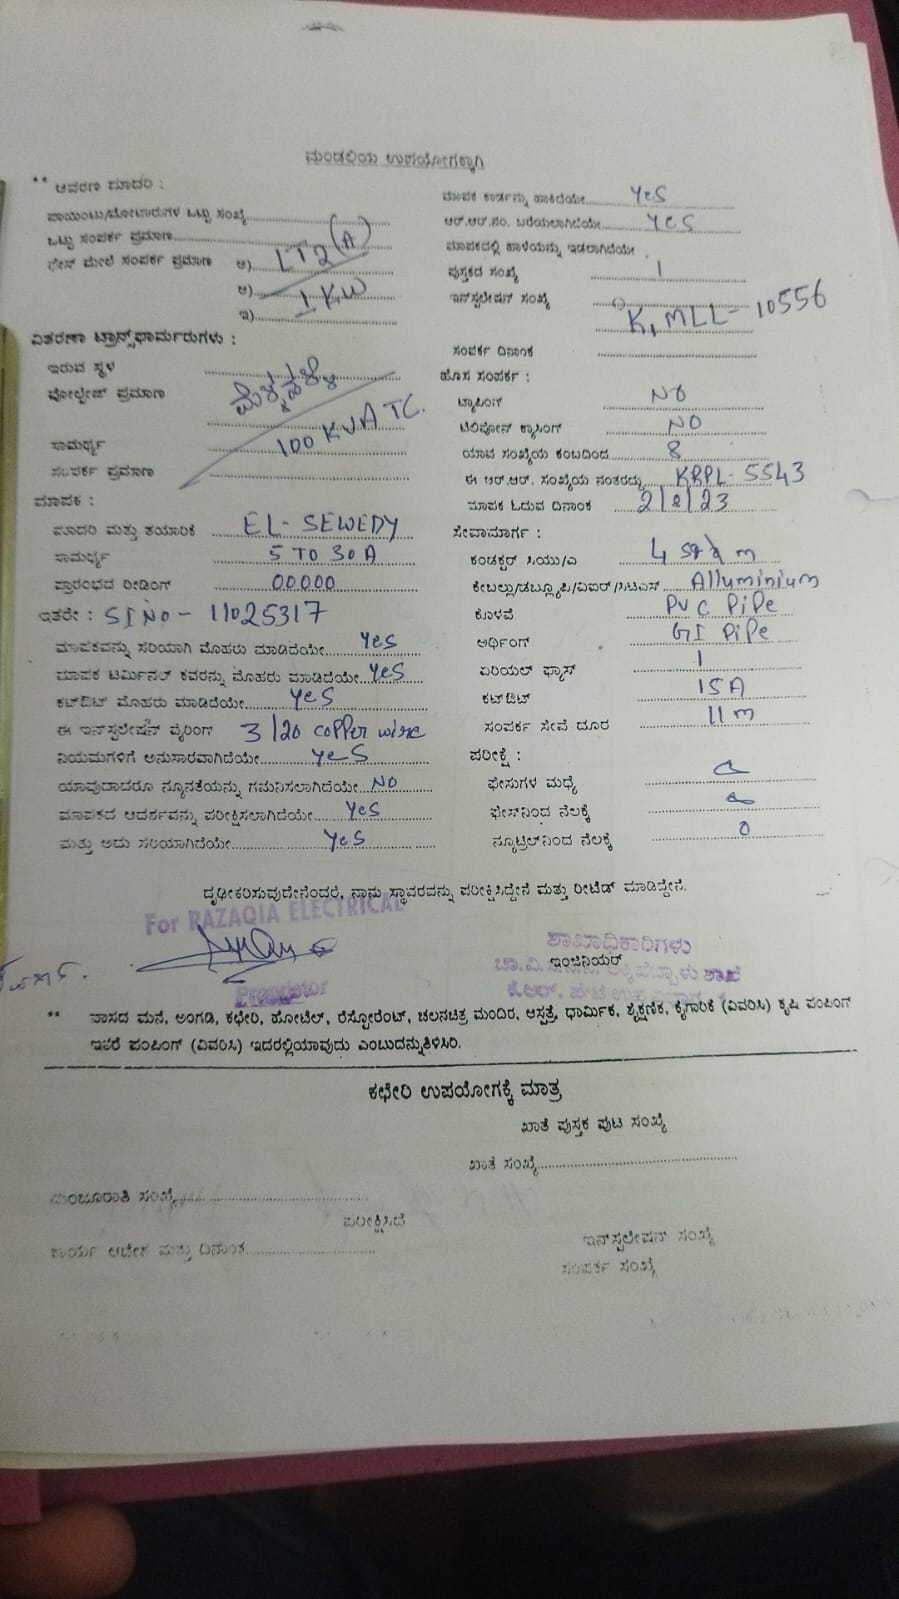 ಮಂಡಲಿಯ ಉಪಯೋಗಕ್ಕಾಗಿ
** ಆವರಣ ಮಾದರಿ :
ಪಾಯಿಂಟು/ಮೋಟಾರುಗಳ ಒಟ್ಟು ಸಂಖ್ಯೆ
ಒಟ್ಟು ಸಂಪರ್ಕ ಪ್ರಮಾಣ
ಫೇಸ್ ಮೇಲೆ ಸಂಪರ್ಕ ಪ್ರಮಾಣ ಅ) LT2(A)
ಆ) 1 KW
ಇ)
ವಿತರಣಾ ಟ್ರಾನ್ಸ್‌ಫಾರ್ಮರುಗಳು :
ಇರುವ ಸ್ಥಳ
ವೋಲ್ಟೇಜ್ ಪ್ರಮಾಣ
ಸಾಮರ್ಥ್ಯ 100 KVA TC.
ಸಂಪರ್ಕ ಪ್ರಮಾಣ
ಮಾಪಕ :
ಮಾದರಿ ಮತ್ತು ತಯಾರಿಕೆ EL- SEWEDY
ಸಾಮರ್ಥ್ಯ 5 TO 30 A
ಪ್ರಾರಂಭದ ರೀಡಿಂಗ್ 00000
ಇತರೇ : SINO - 11025317
ಮಾಪಕವನ್ನು ಸರಿಯಾಗಿ ಮೊಹರು ಮಾಡಿದೆಯೇ Yes
ಮಾಪಕ ಟರ್ಮಿನಲ್ ಕವರನ್ನು ಮೊಹರು ಮಾಡಿದೆಯೇ Yes
ಕಟ್‌ಔಟ್ ಮೊಹರು ಮಾಡಿದೆಯೇ Yes
ಈ ಇನ್‌ಸ್ಟಲೇಷನ್ ವೈರಿಂಗ್ 3/20 copper wire
ನಿಯಮಗಳಿಗೆ ಅನುಸಾರವಾಗಿದೆಯೇ Yes
ಯಾವುದಾದರೂ ನ್ಯೂನತೆಯನ್ನು ಗಮನಿಸಲಾಗಿದೆಯೇ NO
ಮಾಪಕದ ಆದರ್ಶವನ್ನು ಪರೀಕ್ಷಿಸಲಾಗಿದೆಯೇ Yes
ಮತ್ತು ಅದು ಸರಿಯಾಗಿದೆಯೇ Yes
ಮಾಪಕ ಕಾರ್ಡನ್ನು ಹಾಕಿದೆಯೇ Yes
ಆರ್.ಆರ್.ನಂ. ಬರೆಯಲಾಗಿದೆಯೇ YES
ಮಾಪಕದಲ್ಲಿ ಹಾಳೆಯನ್ನು ಇಡಲಾಗಿದೆಯೇ
ಪುಸ್ತಕದ ಸಂಖ್ಯೆ 1
ಇನ್‌ಸ್ಟಲೇಷನ್ ಸಂಖ್ಯೆ K1MLL- 10556
ಸಂಪರ್ಕ ದಿನಾಂಕ
ಹೊಸ ಸಂಪರ್ಕ :
ಟ್ಯಾಪಿಂಗ್ NO
ಟೆಲಿಫೋನ್ ಕ್ರಾಸಿಂಗ್ NO
ಯಾವ ಸಂಖ್ಯೆಯ ಕಂಬದಿಂದ 8
ಈ ಆರ್.ಆರ್. ಸಂಖ್ಯೆಯ ನಂತರದ್ದು KRPL- 5543
ಮಾಪಕ ಓದುವ ದಿನಾಂಕ 2/8/23
ಸೇವಾಮಾರ್ಗ :
ಕಂಡಕ್ಟರ್ ಸಿಯು/ಎ
ಕೇಬಲ್ಲು/ಡಬ್ಲ್ಯೂಪಿ/ವಿಐಆರ್/ಸಿಟಿಎಸ್ Alluminium
ಕೊಳವೆ PVC Pipe
ಅರ್ಥಿಂಗ್ GI Pipe
ಏರಿಯಲ್ ಫ್ಯೂಸ್ 1
ಕಟ್‌ಔಟ್ 15A
ಸಂಪರ್ಕ ಸೇವೆ ದೂರ 11 m
ಪರೀಕ್ಷೆ :
ಫೇಸುಗಳ ಮಧ್ಯೆ
ಫೇಸ್‌ನಿಂದ ನೆಲಕ್ಕೆ
ನ್ಯೂಟ್ರಲ್‌ನಿಂದ ನೆಲಕ್ಕೆ 0
ದೃಢೀಕರಿಸುವುದೇನೆಂದರೆ, ನಾನು ಸ್ಥಾವರವನ್ನು ಪರೀಕ್ಷಿಸಿದ್ದೇನೆ ಮತ್ತು ರೀಟೆಡ್ ಮಾಡಿದ್ದೇನೆ.
For RAZAQIA ELECTRICAL
Proprietor
ಶಾಖಾಧಿಕಾರಿಗಳು
ಇಂಜಿನಿಯರ್
** ವಾಸದ ಮನೆ, ಅಂಗಡಿ, ಕಛೇರಿ, ಹೋಟೆಲ್, ರೆಸ್ಟೋರೆಂಟ್, ಚಲನಚಿತ್ರ ಮಂದಿರ, ಆಸ್ಪತ್ರೆ, ಧಾರ್ಮಿಕ, ಶೈಕ್ಷಣಿಕ, ಕೈಗಾರಿಕೆ (ವಿವರಿಸಿ) ಕೃಷಿ ಪಂಪಿಂಗ್
ಇತರೆ ಪಂಪಿಂಗ್ (ವಿವರಿಸಿ) ಇದರಲ್ಲಿಯಾವುದು ಎಂಬುದನ್ನುತಿಳಿಸಿರಿ.
ಕಛೇರಿ ಉಪಯೋಗಕ್ಕೆ ಮಾತ್ರ
ಖಾತೆ ಪುಸ್ತಕ ಪುಟ ಸಂಖ್ಯೆ
ಖಾತೆ ಸಂಖ್ಯೆ
ಮಂಜೂರಾತಿ ಸಂಖ್ಯೆ
ಪರೀಕ್ಷಿಸಿದೆ
ಕಾರ್ಯ ಆದೇಶ ಮತ್ತು ದಿನಾಂಕ
ಇನ್‌ಸ್ಟಲೇಷನ್ ಸಂಖ್ಯೆ
ಸಂಪರ್ಕ ಸಂಖ್ಯೆ